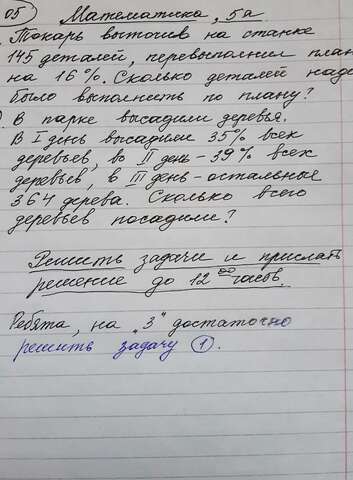 05 Математика, 5а
Токарь выточив на станке
145 деталей, перевыполнил план
на 16%. Сколько деталей надо
было выполнить по плану?
В парке высадили деревья.
В I день высадили 35% всех
деревьев, во II день - 39% всех
деревьев, в III день - остальные
364 дерева. Сколько всего
деревьев посадили?
Решить задачи и прислать
решение до 12 00 часов.
Ребята, на "3" достаточно
решить задачу 1.